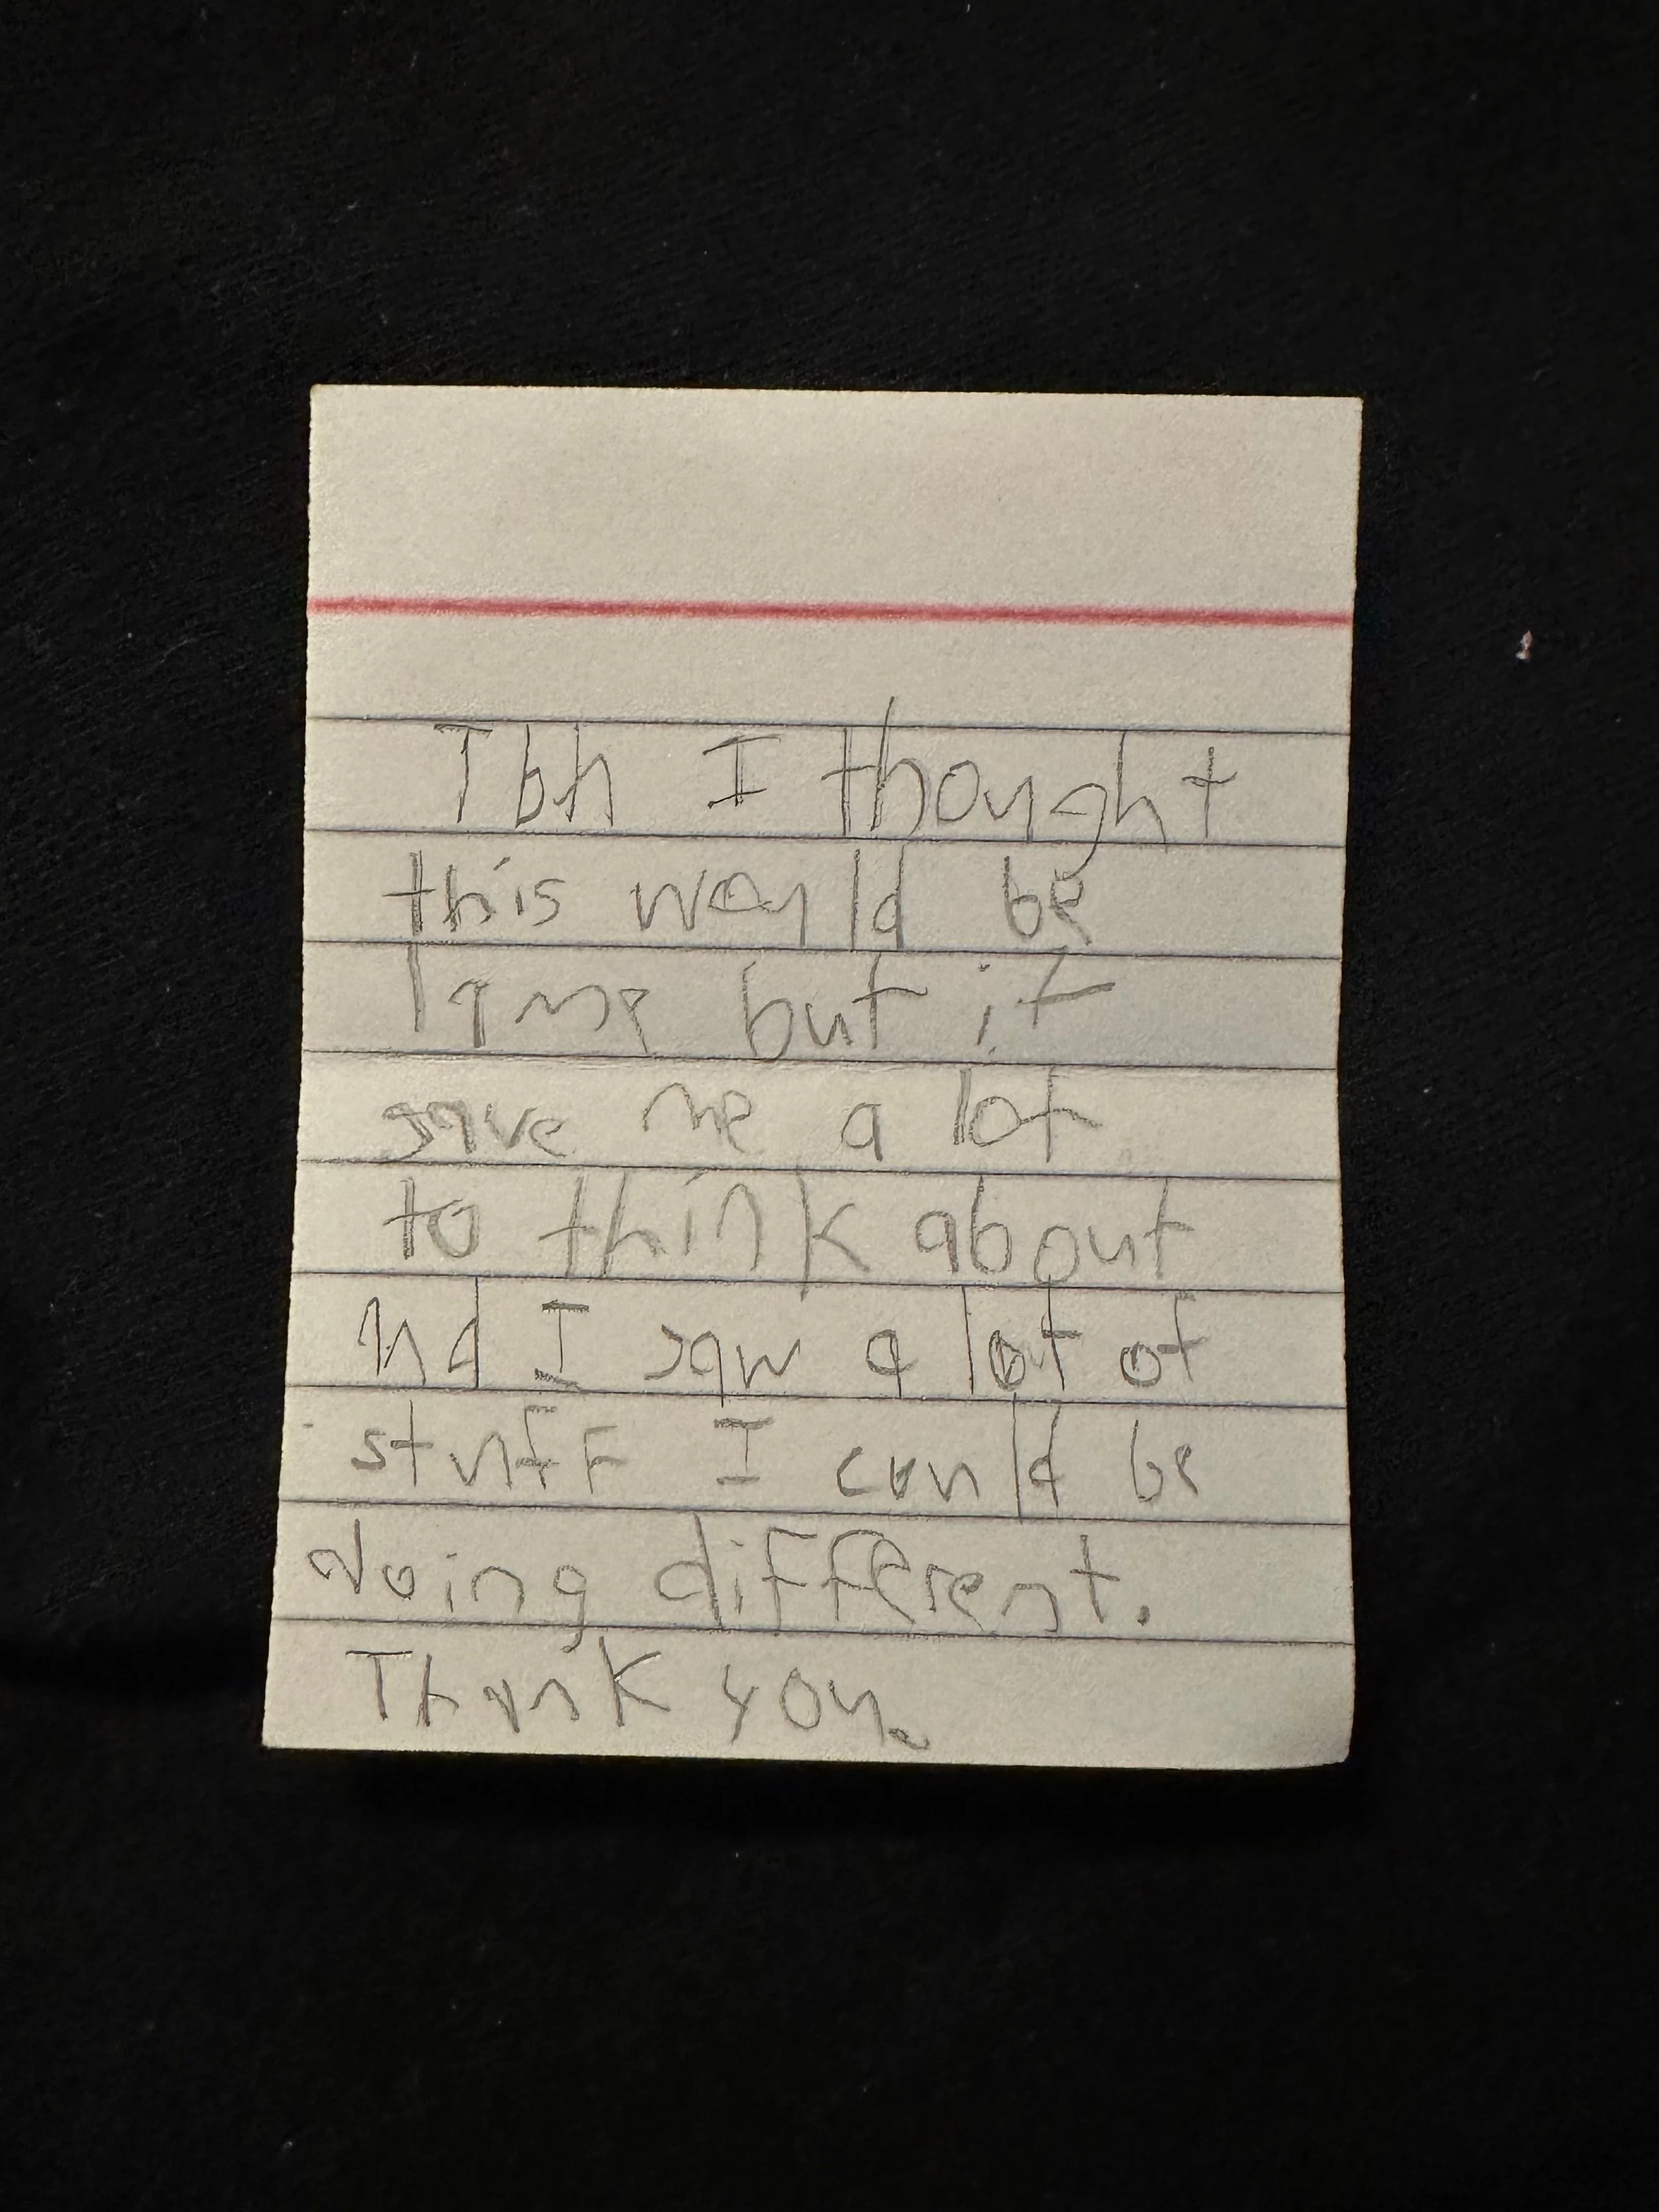 Tbh I thought
this would be
lame but it
gave me a lot
to think about
nd I saw a lot of
stuff I could be
doing different.
Thank you.